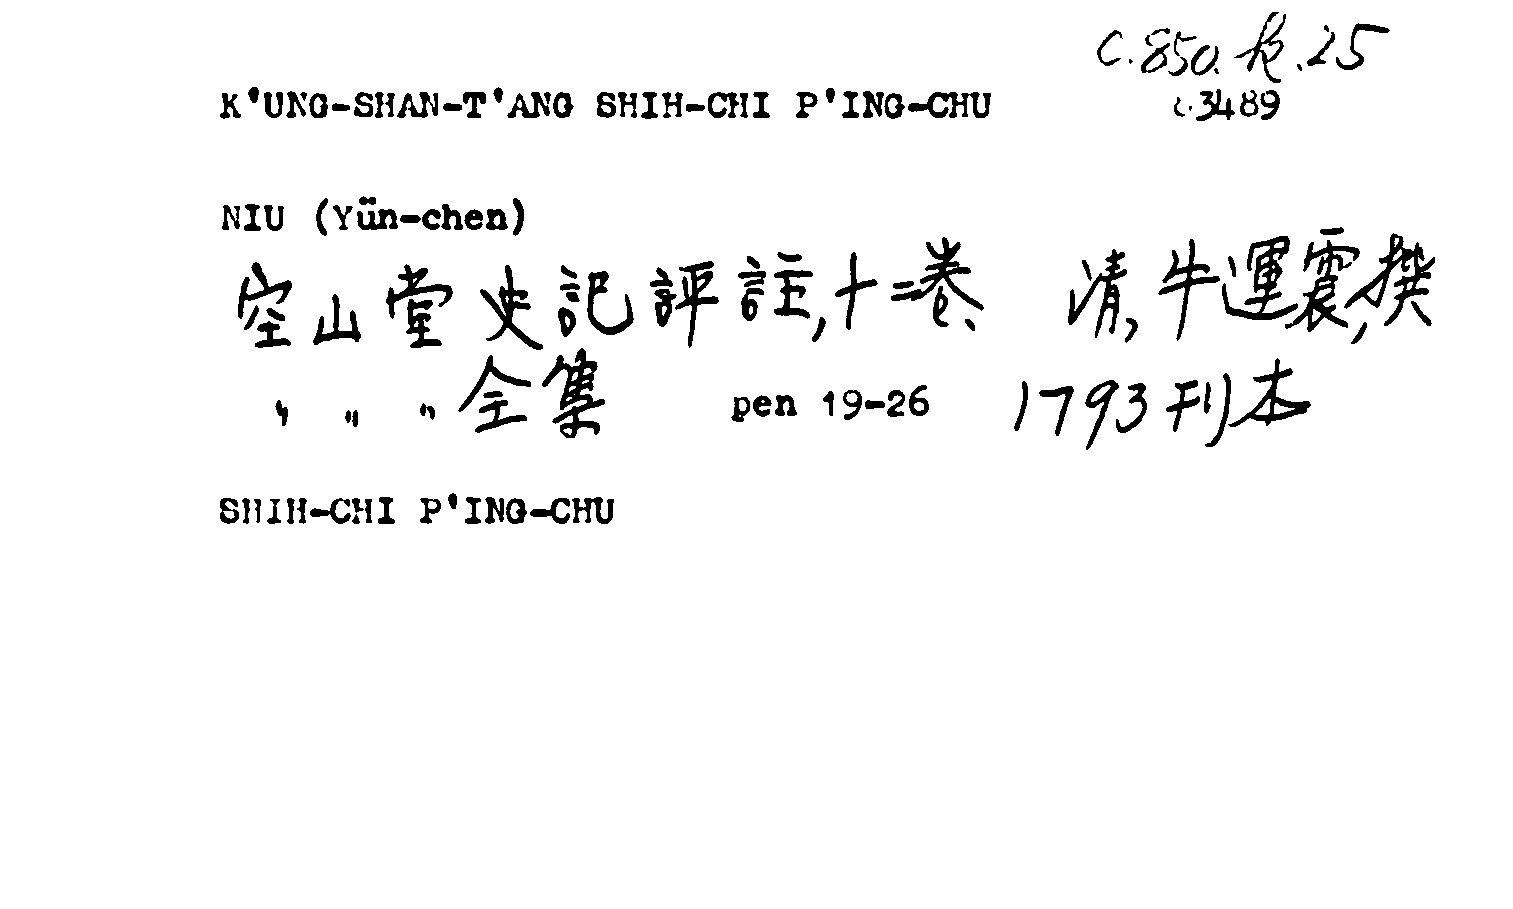 C.850.k.25
K'UNG-SHAN-T'ANG SHIH-CHI P'ING-CHU
c.3489
NIU (Yün-chen)
空山堂史記評註,十二卷、 清,牛運震,撰
〃 〃 〃 全集 pen 19-26 1793刊本
SHIH-CHI P'ING-CHU